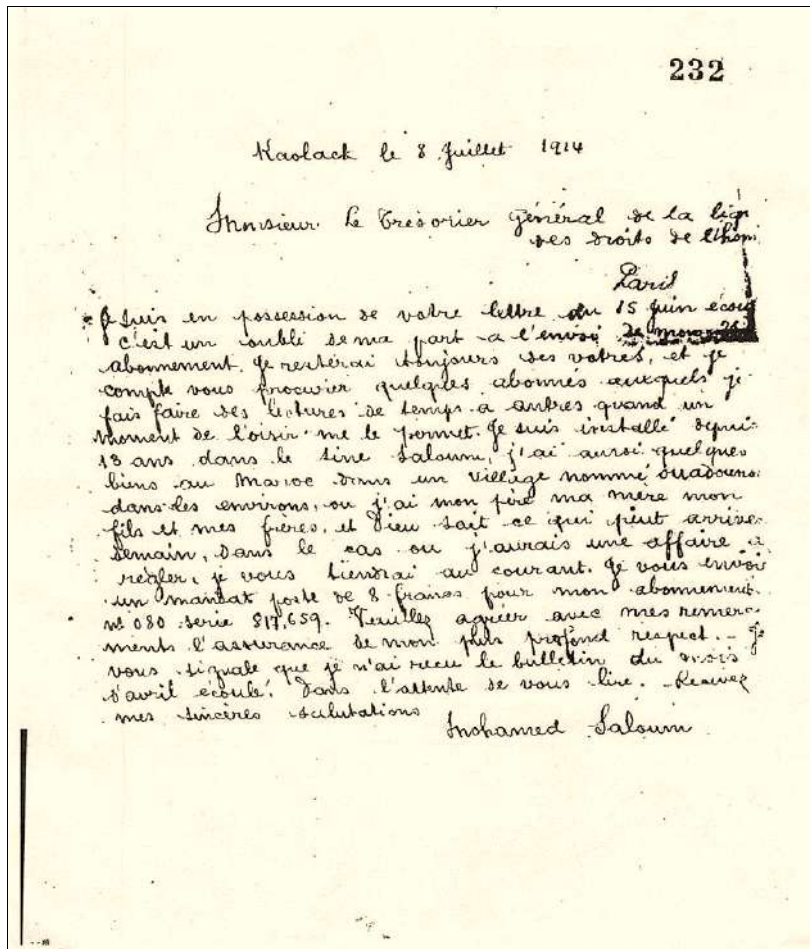 232
Kaolack le 8 Juillet 1914
Monsieur Le Trésorier Général de la lig
des droits de l'hom
Paris
Je suis en possession de votre lettre du 15 Juin écou
c'est un oubli de ma part a l'envoi de mon
abonnement. Je resterai toujours des votres, et je
compte vous procurier quelques abonnés auxquels je
fais faire des lectures de temps a autres quand un
moment de l'oisir me le permet. Je suis installé depui
13 ans dans le Sine Saloum, j'ai aussi quelques
biens au Maroc dans un village nommé
dans les environs, ou j'ai mon père ma mère mon
fils et mes frères, et Dieu sait ce qui peut arrive
demain, dans le cas ou j'aurais une affaire a
regler, je vous tiendrai au courant. Je vous envoi
un mandat poste de 8 francs pour mon abonnement.
n° 080 serie 817,659. Veuillez agréer avec mes remerc
ments l'assurance de mon plus profond respect. - Je
vous signale que je n'ai recu le bulletin du mois
d'avril écoulé. Dans l'attente de vous lire. Recevez
mes sincères salutations
Mohamed Saloum